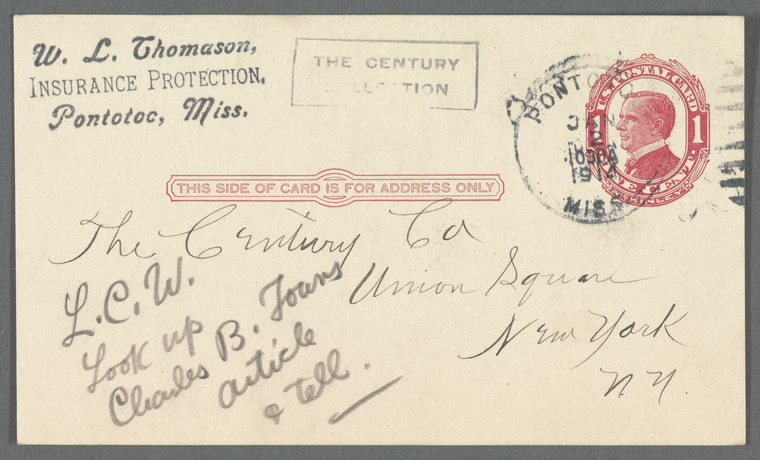 W. L. Thomason,
INSURANCE PROTECTION.
Pontotoc, Miss.
THE CENTURY
COLLECTION
PONTOTOC
JAN
2
1030A
1914
MISS
U.S. POSTAL CARD
1 1
ONE CENT
McKINLEY
THIS SIDE OF CARD IS FOR ADDRESS ONLY
The Century Co
Union Square
New York
N.Y.
L.C.W.
Look up
Charles B. Towns
article
& tell.